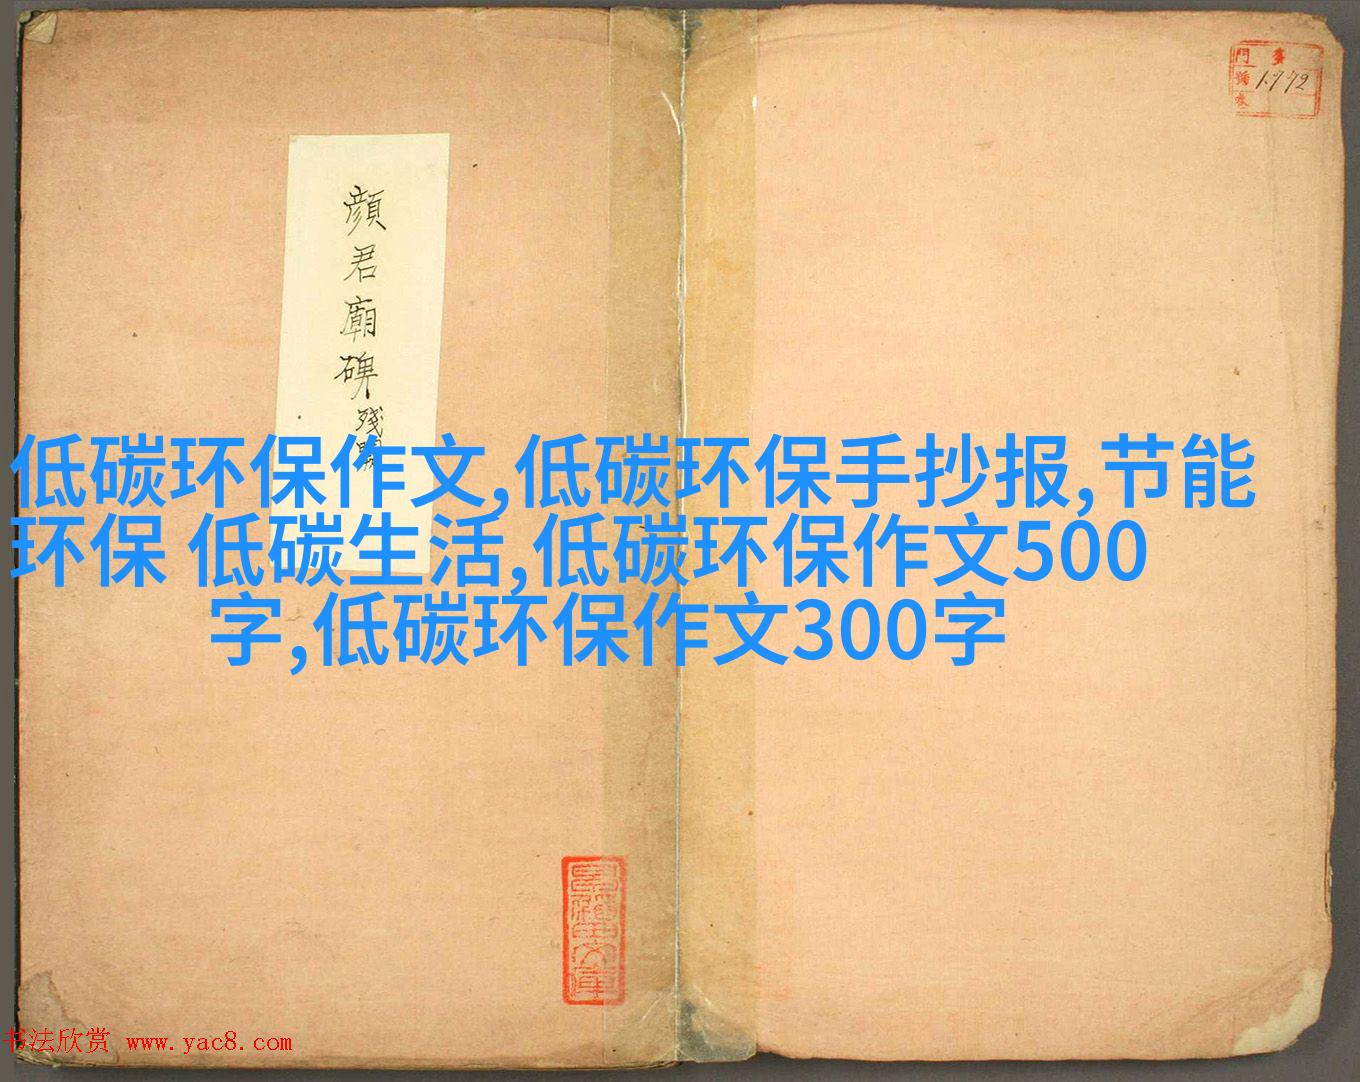 門 臺
號 1772
卷
顔君廟碑 残
低碳环保作文,低碳环保手抄报,节能
环保 低碳生活,低碳环保作文500
字,低碳环保作文300字
书法欣赏 www.yac8.com